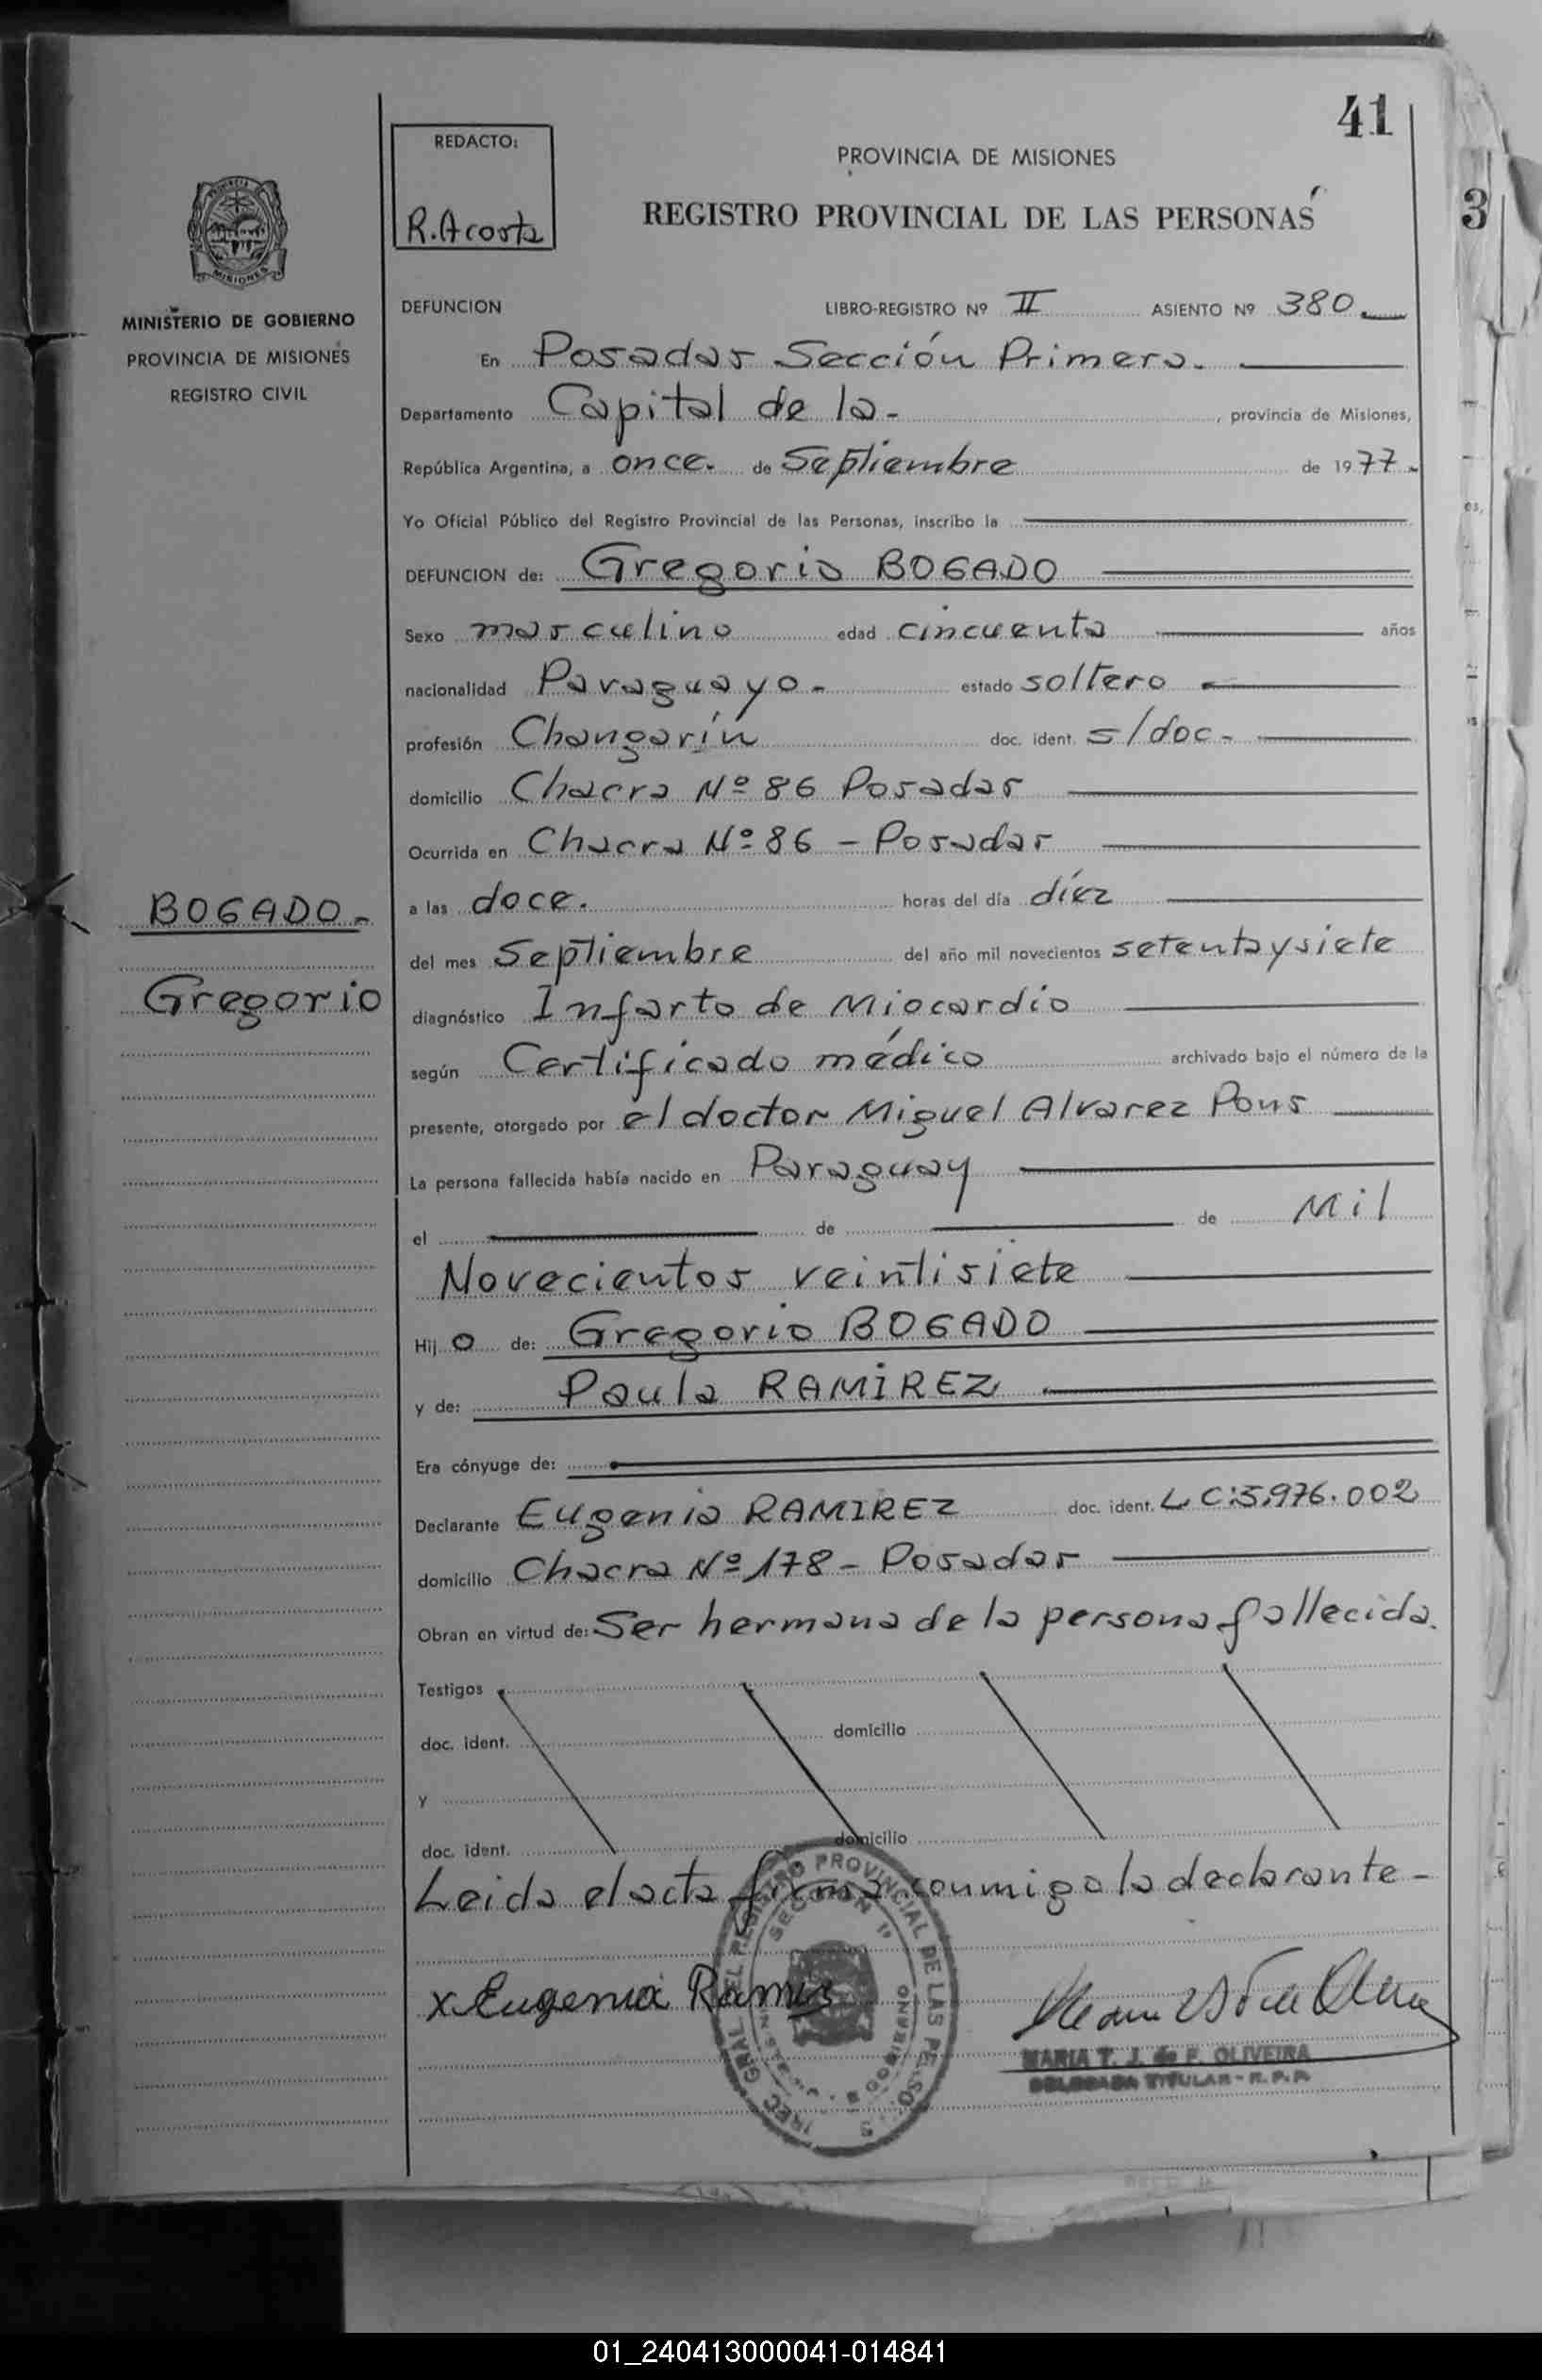 41
REDACTO:
R. Acosta
PROVINCIA DE MISIONES
REGISTRO PROVINCIAL DE LAS PERSONAS
3
PROVINCIA DE
MISIONES
MINISTERIO DE GOBIERNO
PROVINCIA DE MISIONES
REGISTRO CIVIL
DEFUNCION LIBRO-REGISTRO Nº II ASIENTO Nº 380
En Posadas Sección Primera.
Departamento Capital de la - , provincia de Misiones,
República Argentina, a once. de Septiembre de 1977.
Yo Oficial Público del Registro Provincial de las Personas, inscribo la
DEFUNCION de: Gregorio BOGADO
Sexo masculino edad cincuenta años
nacionalidad Paraguayo. estado soltero
profesión Changarín doc. ident. s/doc-
domicilio Chacra Nº 86 Posadas
Ocurrida en Chacra Nº 86 - Posadas
BOGADO-
a las doce. horas del día díez
del mes Septiembre del año mil novecientos setenta y siete
Gregorio
diagnóstico Infarto de Miocardio
según Certificado médico archivado bajo el número de la
presente, otorgado por el doctor Miguel Alvarez Pons
La persona fallecida había nacido en Paraguay
el de de Mil
Novecientos veintisiete
Hijo de: Gregorio BOGADO
y de: Paula RAMIREZ
Era cónyuge de:
Declarante Eugenia RAMIREZ doc. ident. L C:5.976.002
domicilio Chacra Nº 178 - Posadas
Obran en virtud de: Ser hermana de la persona fallecida.
Testigos
doc. ident. domicilio
y
doc. ident. domicilio
Leida el acta firma conmigo la declarante-
x Eugenia Ramis
REGISTRO PROVINCIAL DE LAS PERSO
SECCION 1ª
GOBIERNO
MARIA T. J. de F. OLIVEIRA
DELEGADA TITULAR - R. P. P.
01_240413000041-014841